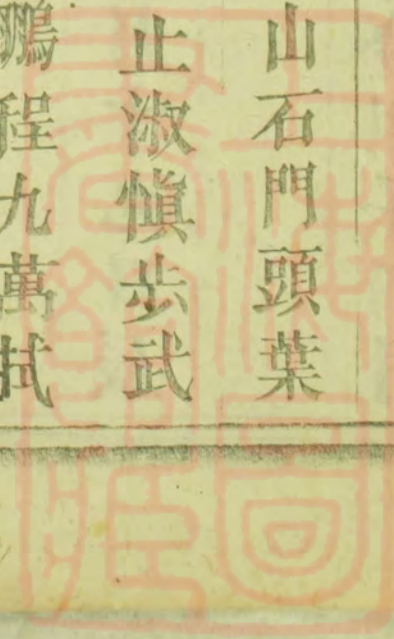 山石門頭葉
止淑慎步武
鵬程九萬拭